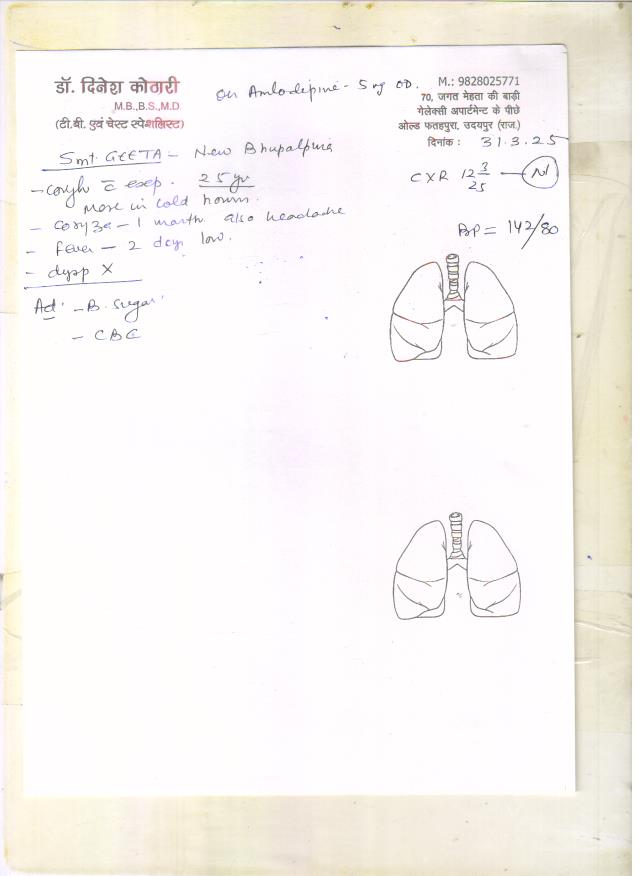 डॉ. दिनेश कोठारी
M.B.,B.S.,M.D
(टी.बी. एवं चेस्ट स्पेशलिस्ट)
On Amlodipine - 5 mg OD.
M.: 9828025771
70, जगत मेहता की बाड़ी
गेलेक्सी अपार्टमेन्ट के पीछे
ओल्ड फतहपुरा, उदयपुर (राज.)
दिनांक : 31.3.25
Smt. GEETA - New Bhupalpura
- cough c̄ exep. 25 yr
More in cold
- coryza - 1 month also headache
- fever - 2 days low.
- dysp X
CXR 12 3/25 - N
BP = 142/80
Ad. - B. Sugar
- CBC